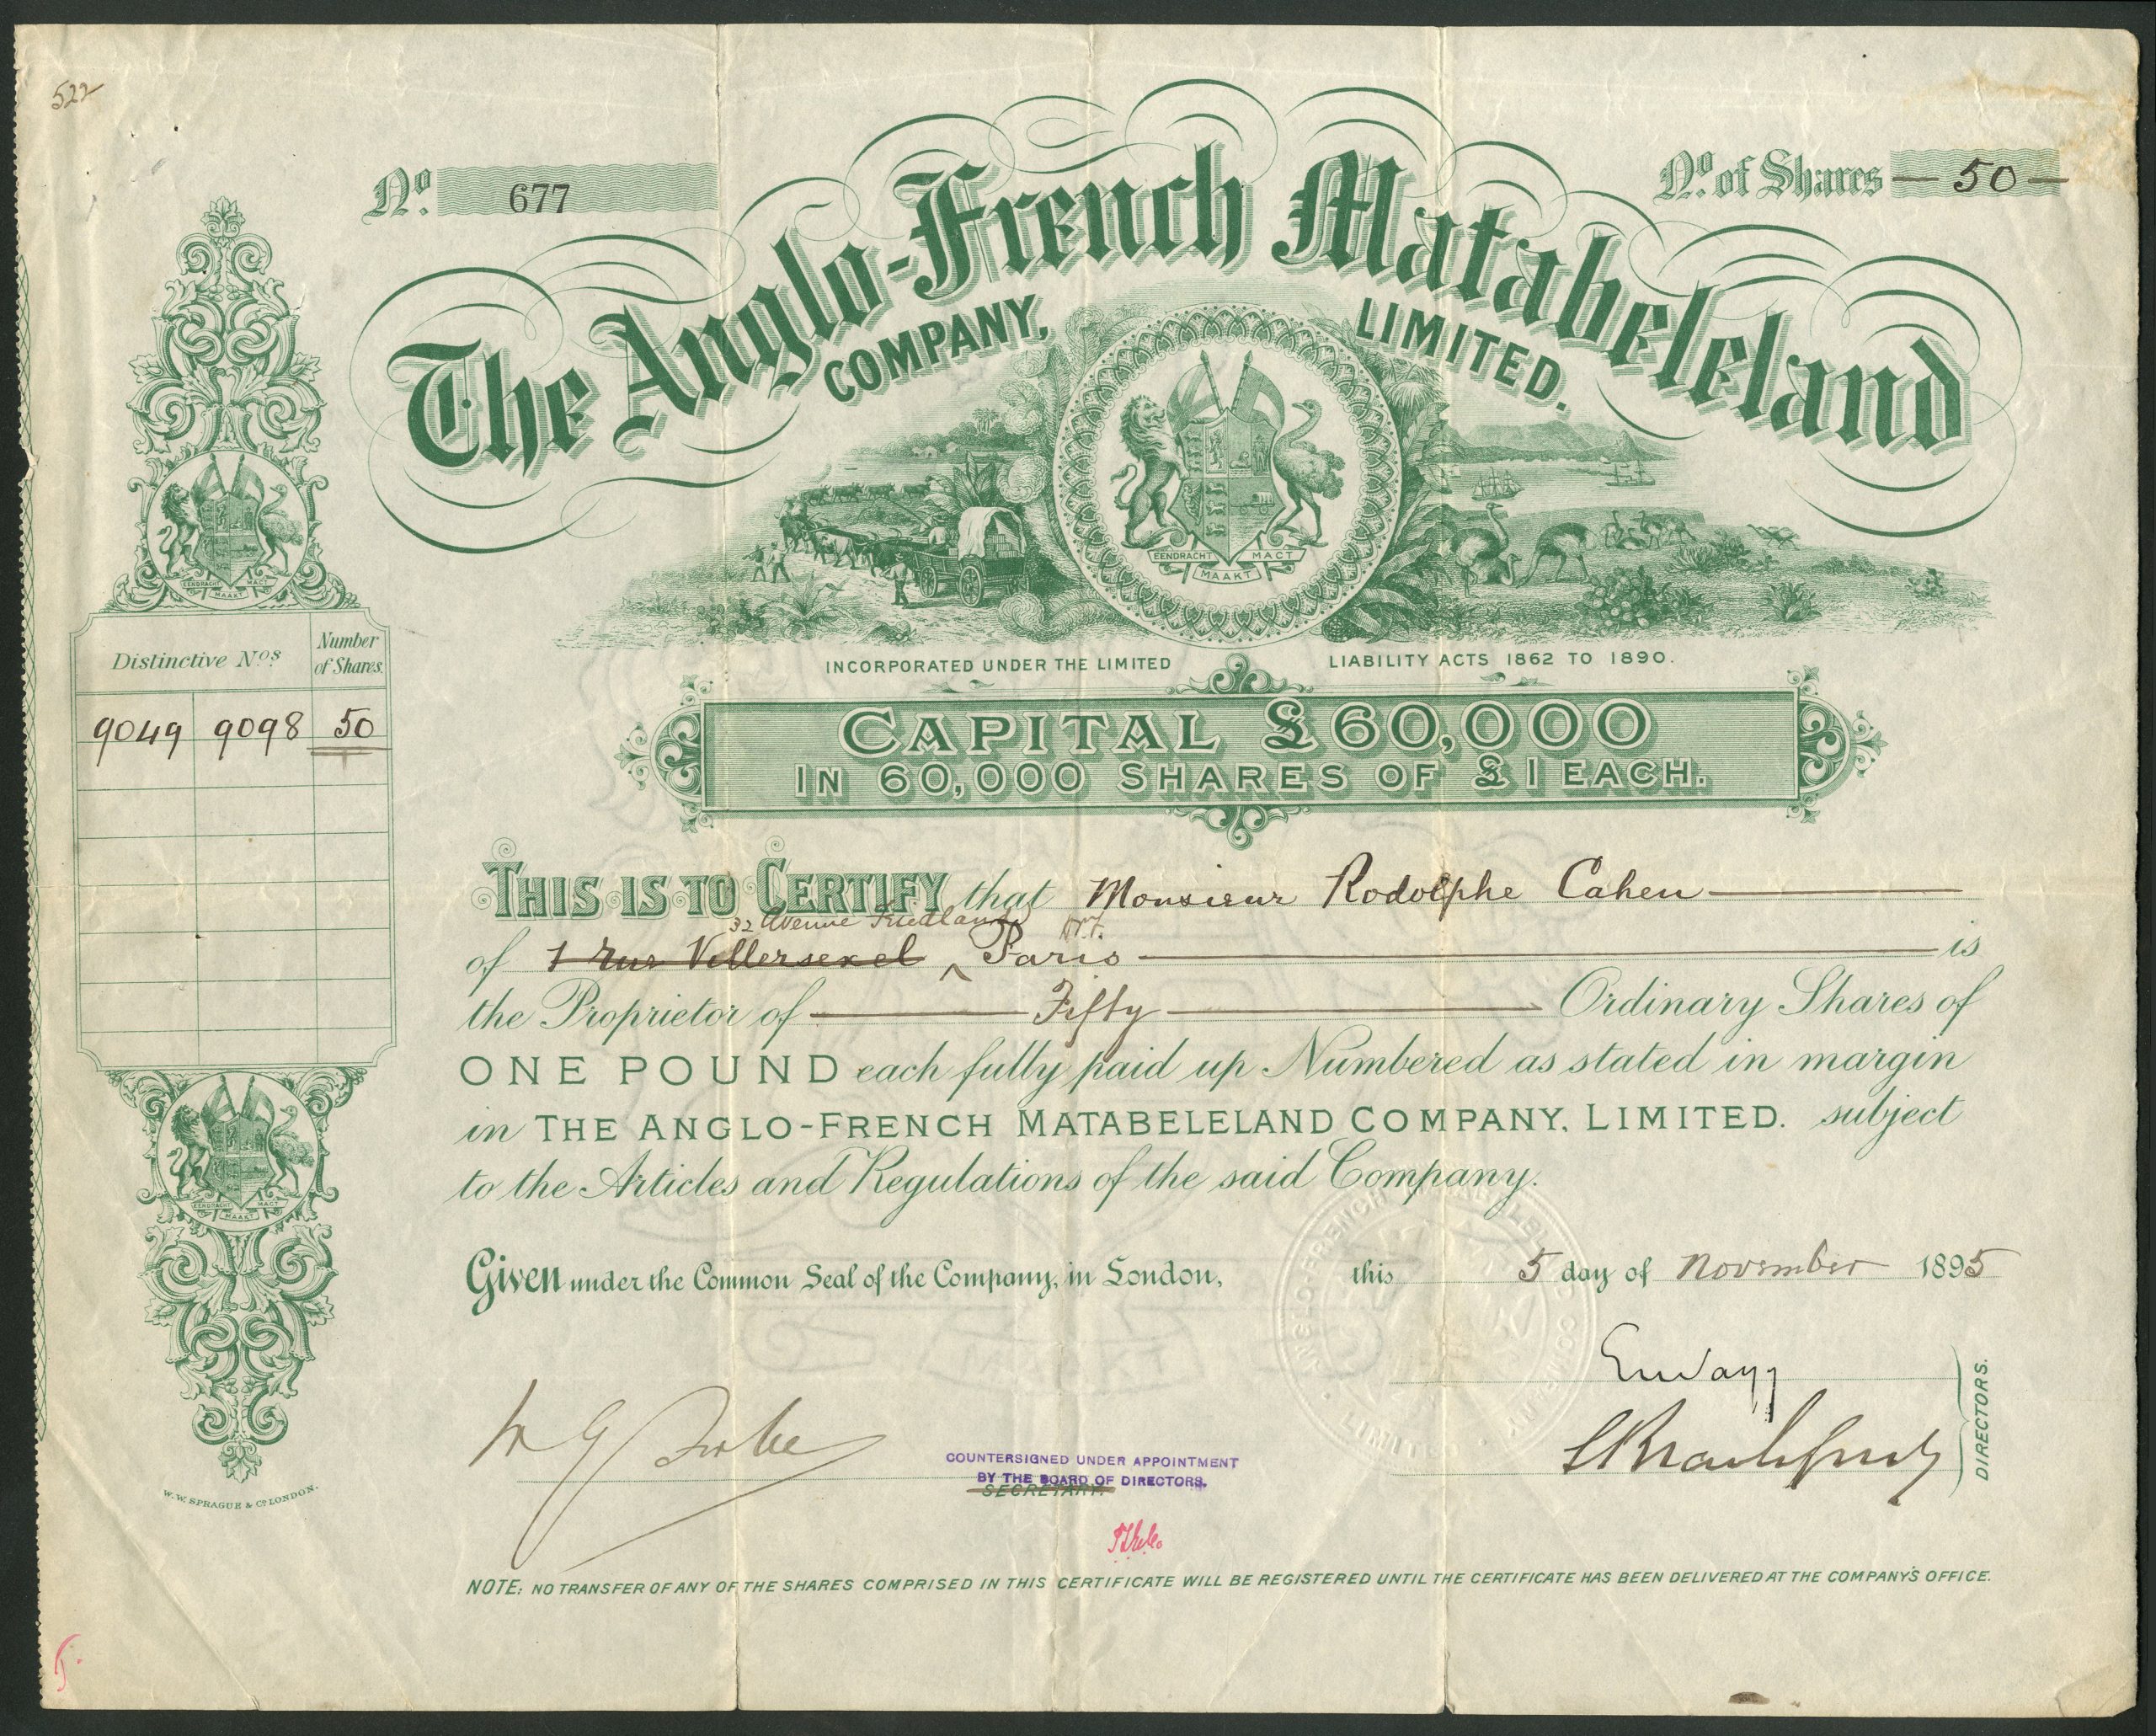 522
No. 677
No. of Shares — 50 —
The Anglo-French Matabeleland
COMPANY, LIMITED.
EENDRACHT MAAKT MACT
INCORPORATED UNDER THE LIMITED LIABILITY ACTS 1862 TO 1890.
CAPITAL £60,000
IN 60,000 SHARES OF £1 EACH.
EENDRACHT MAAKT MACT
Distinctive Nos Number of Shares.
9049 9098 50
EENDRACHT MAAKT MACT
W. W. SPRAGUE & Co LONDON.
THIS IS TO CERTIFY that Monsieur Rodolphe Cahen
32 Avenue Friedland
of 1 Rue Villersexel Paris is
the Proprietor of Fifty Ordinary Shares of
ONE POUND each fully paid up Numbered as stated in margin
in THE ANGLO-FRENCH MATABELELAND COMPANY, LIMITED. subject
to the Articles and Regulations of the said Company.
Given under the Common Seal of the Company, in London, this 5 day of November 1895
DIRECTORS.
COUNTERSIGNED UNDER APPOINTMENT
BY THE BOARD OF DIRECTORS.
SECRETARY.
NOTE: NO TRANSFER OF ANY OF THE SHARES COMPRISED IN THIS CERTIFICATE WILL BE REGISTERED UNTIL THE CERTIFICATE HAS BEEN DELIVERED AT THE COMPANY'S OFFICE.